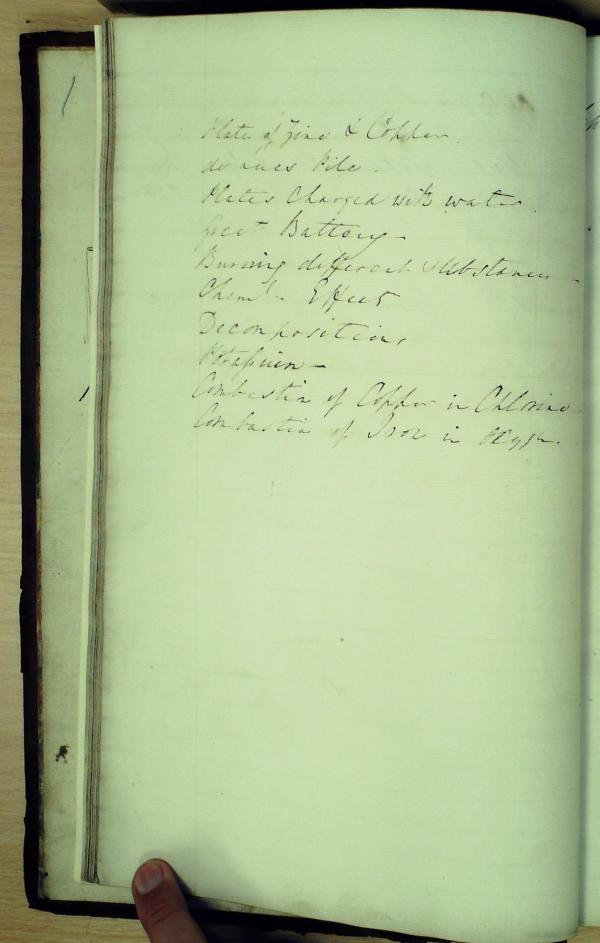 Plates of Zinc & Copper.
de Lucs Pile
Plates Charged with water.
great Battery –
Burning different substances –
Cheml. Effect
Decompositions
Potassium –
Combustion of Copper in Chlorine
Combustion of Iron in Oxygen.